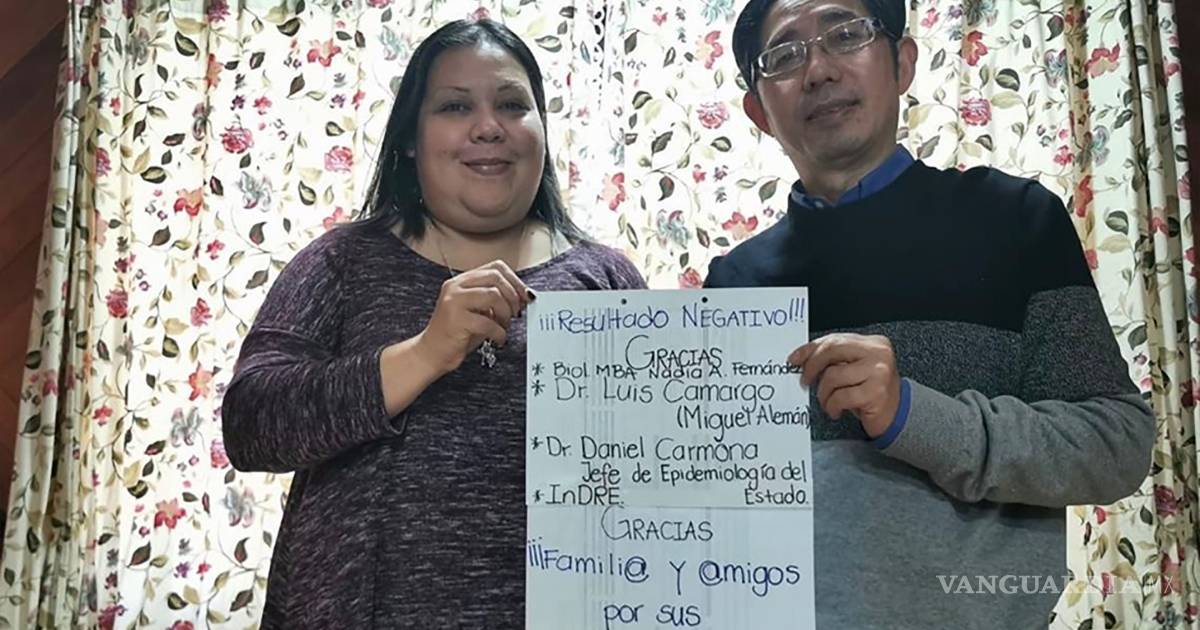 ¡¡¡Resultado NEGATIVO!!!
GRACIAS
* Biol. MBA Nadia A. Fernández
* Dr. Luis Camargo
(Miguel Alemán)
* Dr. Daniel Carmona
Jefe de Epidemiología del
Estado.
* InDRE.
GRACIAS
¡¡¡Famili@ y @migos
por sus
VANGUARDIA MX